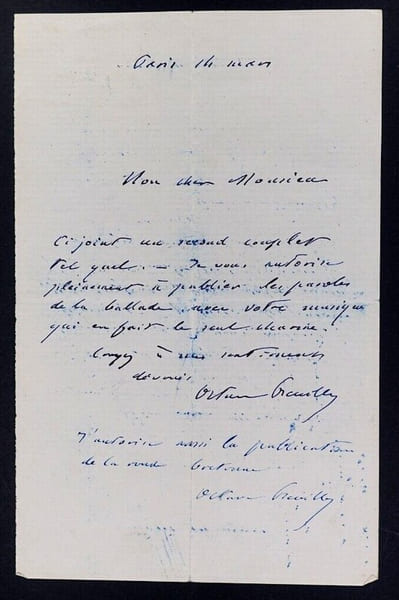 Paris 14 mars
Mon cher Monsieur
Ci joint un second couplet
tel quel. — Je vous autorise
pleinement à publier les paroles
de la ballade avec votre musique
qui en fait le seul charme.
Croyez à mes sentiments
dévoués
Octave
J'autorise aussi la publication
de la ronde bretonne
Octave